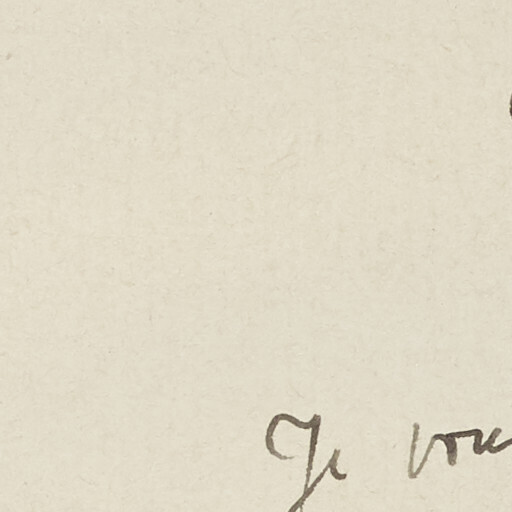 Je vou